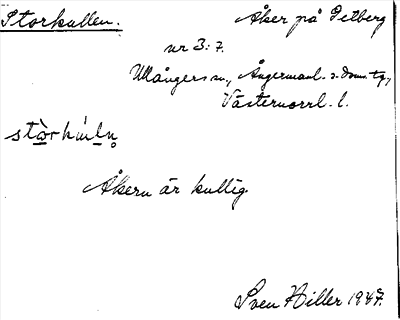 Storkullen. Åker på Detberg
nr 3:7.
Ullångers sn., Ångermanl. s. doms. tg.,
Västernorrl. l.
stò̱rkù̱ḻn̥
Åkern är kullig.
Sven Hiller 1947.